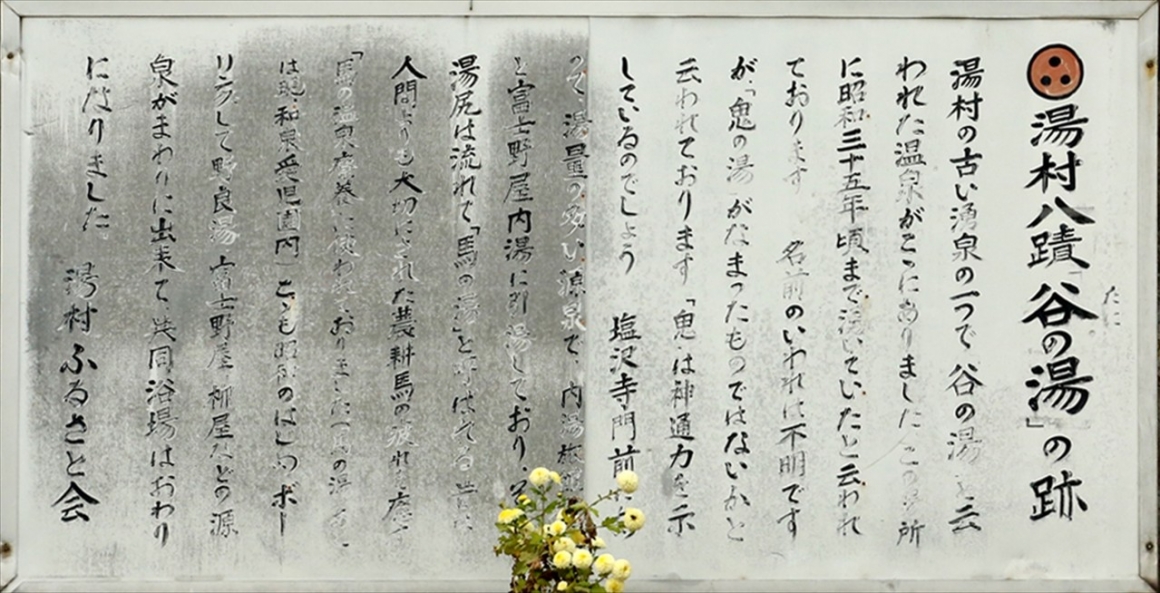 湯村八蹟「谷の湯」の跡
たに
湯村の古い湧泉の一つで谷の湯と云
われた温泉がこゝにありました この場所
に昭和三十五年頃まで湧いていたと云われ
ております 名前のいわれは不明です
が、「鬼の湯」がなまったものではないかと
云われております「鬼」は神通力を示
しているのでしょう 塩沢寺門前
って、湯量の多い源泉で、内湯旅
と富士野屋内湯に引湯しており、
湯尻は流れて「馬の湯」と呼ばれ
人間よりも大切にされた農耕馬の疲れを
「馬の温泉療養」に使われておりました
は現・和泉愛児園内」こゝも昭和のはじめボー
リングして野良湯 富士野屋 柳屋などの源
泉がまわりに出来て、共同浴場はおわり
になりました 湯村ふるさと会